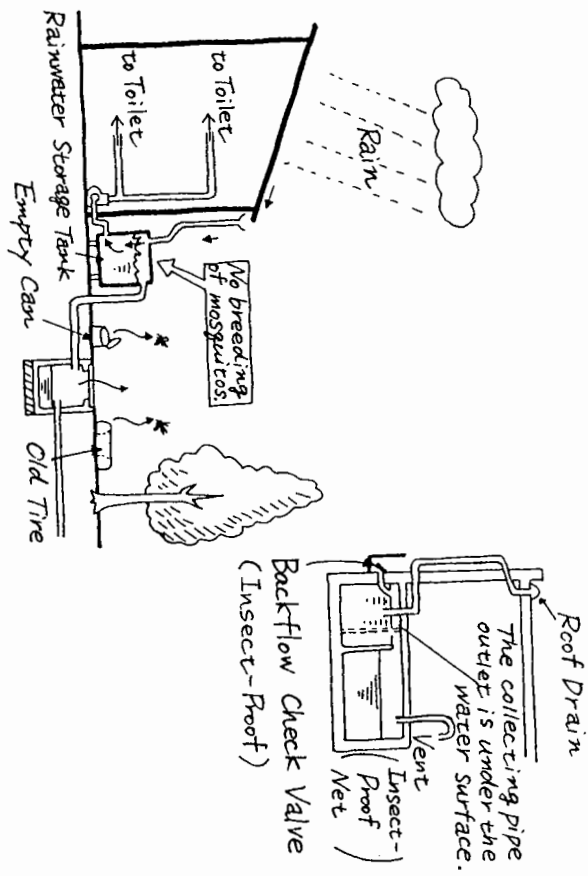 Rain
to Toilet
to Toilet
No breeding
of mosquitos.
Rainwater Storage Tank
Empty Can
Old Tire
Roof Drain
The collecting pipe
outlet is under the
water surface.
Vent
(Insect-
Proof
Net)
Backflow Check Valve
(Insect-Proof)